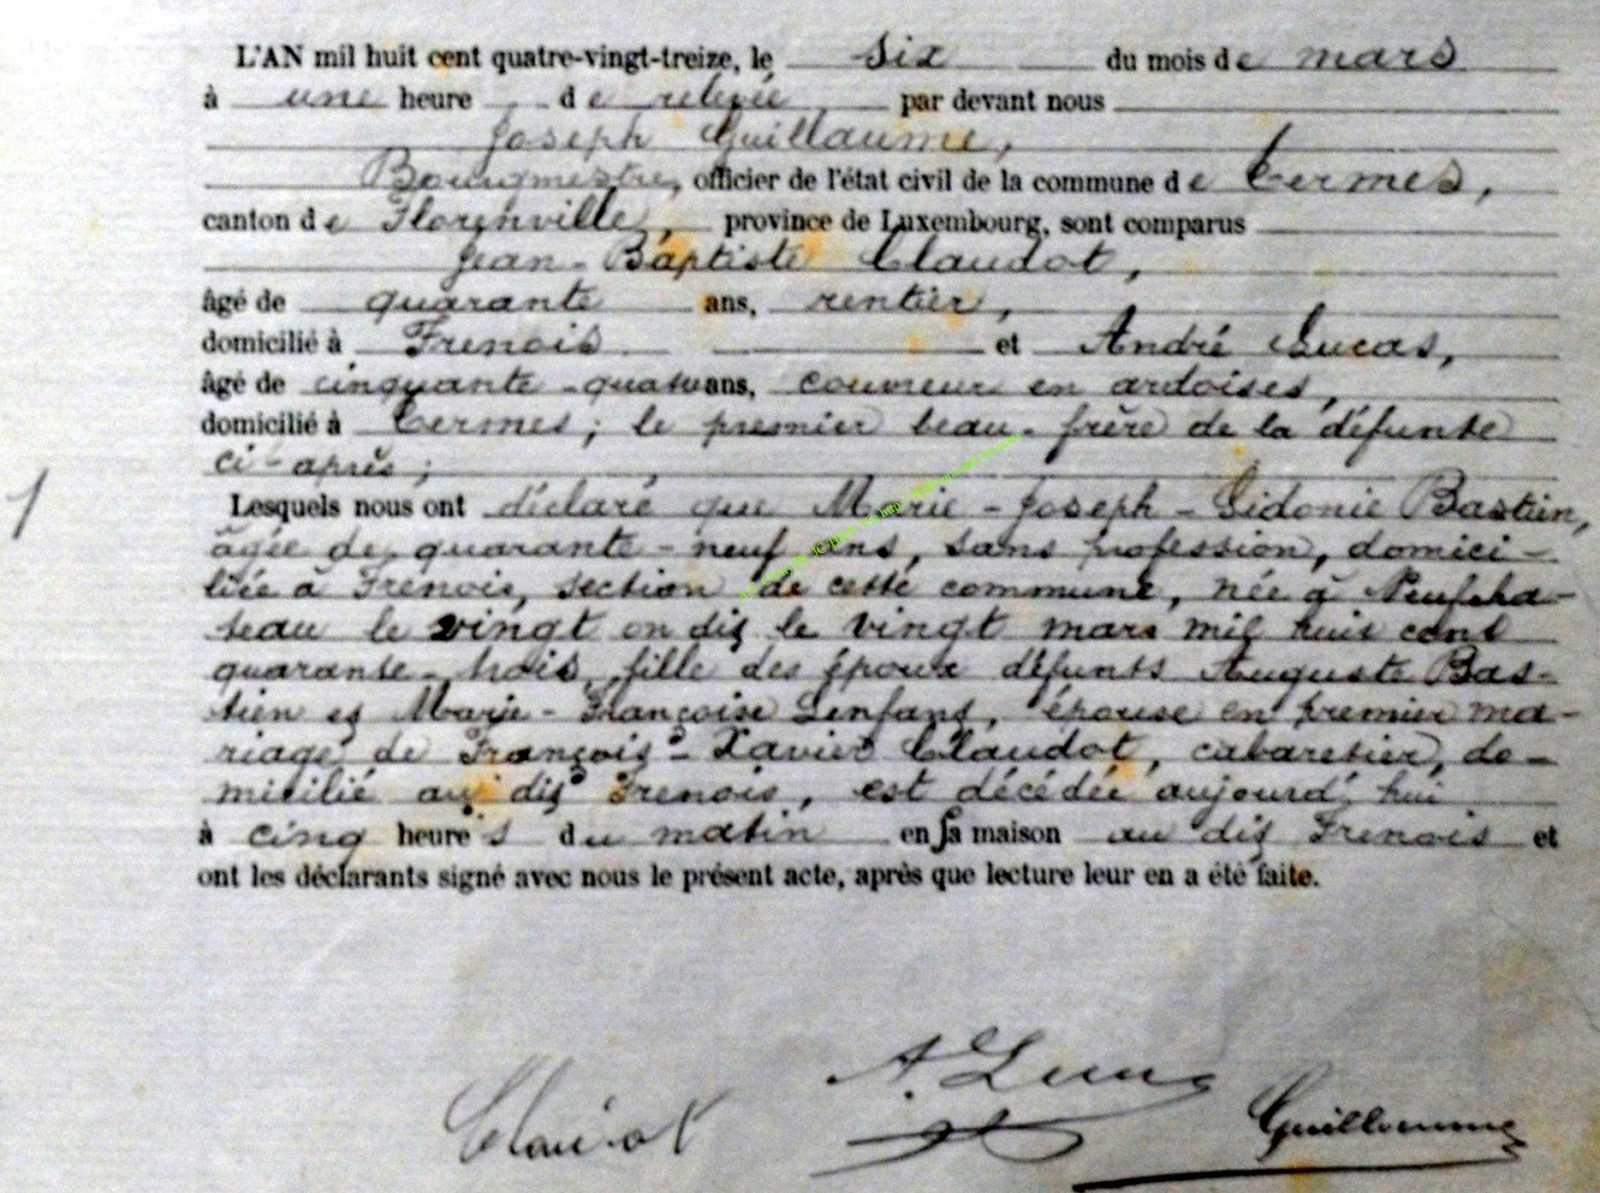 L'AN mil huit cent quatre-vingt-treize, le six du mois de mars
à une heure de relevée par devant nous
Joseph Guillaume,
Bourgmestre, officier de l'état civil de la commune de Termes,
canton de Florenville, province de Luxembourg, sont comparus
Jean-Baptiste Claudot,
âgé de quarante ans, rentier,
domicilié à Frenois et André Lucas,
âgé de cinquante-quatre ans, couvreur en ardoises,
domicilié à Termes; le premier beau-frère de la défunte
ci-après;
Lesquels nous ont déclaré que Marie-Joseph-Sidonie Bastien,
âgée de quarante-neuf ans, sans profession, domici-
liée à Frenois, section de cette commune, née à Neufchâ-
teau le vingt on dit le vingt mars mil huit cent
quarante-trois, fille des époux défunts Auguste Bas-
tien et Marie-Françoise Lenfant, épouse en premier ma-
riage de François-Xavier Claudot, cabaretier, do-
micilié au dit Frenois, est décédée aujourd'hui
à cinq heures du matin en sa maison au dit Frenois et
ont les déclarants signé avec nous le présent acte, après que lecture leur en a été faite.
Claudot A. Lucas Guillaume